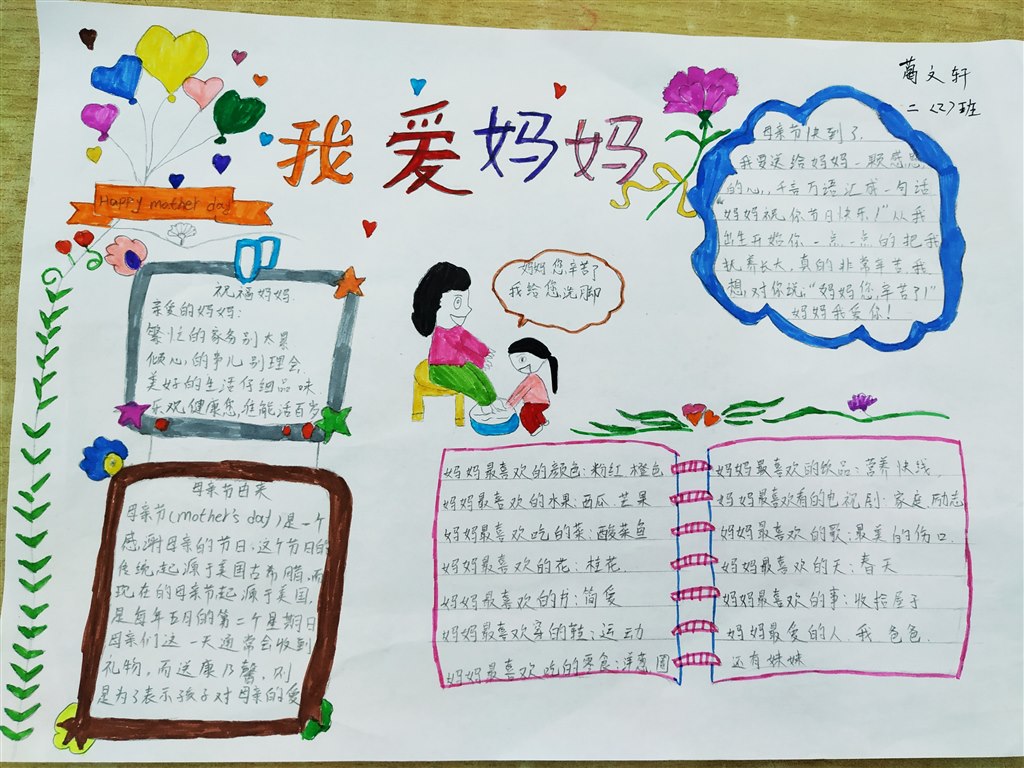 我爱妈妈
葛文轩
二〈2〉班
Happy mother day
母亲节快到了.
我要送给妈妈一颗感恩
的心,千言万语汇成一句话
"妈妈祝你节日快乐!"从我
出生开始你一点一点的把我
抚养长大,真的非常辛苦,我
想,对你说,"妈妈您,辛苦了!"
妈妈我爱你!
祝福妈妈.
亲爱的妈妈:
繁忙的家务别太累
倾心的事儿别理会,
美好的生活仔细品味.
乐观健康您准能活百岁
妈妈您辛苦了
我给您洗脚
母亲节由来
母亲节(mother's day)是一个
感谢母亲的节日.这个节日的
传统起源于美国古希腊,而
现在的母亲节起源于美国,
是每年五月的第二个星期日
母亲们这一天通常会收到
礼物,而送康乃馨,则
是为了表示孩子对母亲的爱
妈妈最喜欢的颜色:粉红 橙色
妈妈最喜欢的水果:西瓜.芒果
妈妈最喜欢吃的菜:酸菜鱼
妈妈最喜欢的花:桂花.
妈妈最喜欢的书:简爱
妈妈最喜欢穿的鞋:运动
妈妈最喜欢吃的零食:洋葱圈
妈妈最喜欢的饮品:营养快线
妈妈最喜欢看的电视剧:家庭励志
妈妈最喜欢的歌:最美的伤口.
妈妈最喜欢的天:春天
妈妈最喜欢的事:收拾屋子
妈妈最爱的人.我 爸爸.
还有妹妹